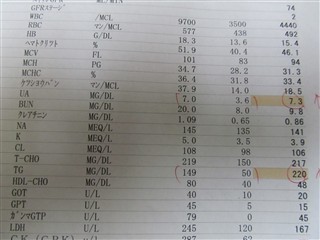 74
GFRステージ 2
WBC /MCL 9700 3500 4440
RBC マン/MCL 577 438 492
HB G/DL 18.3 13.6 15.4
ヘマトクリット % 51.9 40.4 46.1
MCV FL 101 83 94
MCH PG 34.7 28.2 31.3
MCHC % 36.4 31.8 33.4
ケッショウバン マン/MCL 37.9 14.0 18.5
UA MG/DL 7.0 3.6 7.3
BUN MG/DL 20.0 8.0 9.8
クレアチニン MG/DL 1.09 0.65 0.86
NA MEQ/L 145 135 141
K MEQ/L 5.0 3.5 3.9
CL MEQ/L 108 98 106
T-CHO MG/DL 219 150 217
TG MG/DL 149 50 220
HDL-CHO MG/DL 80 40 48
GOT U/L 40 0 20
GPT U/L 45 5 15
ガンマGTP U/L 79 0 45
LDH U/L 245 120 167